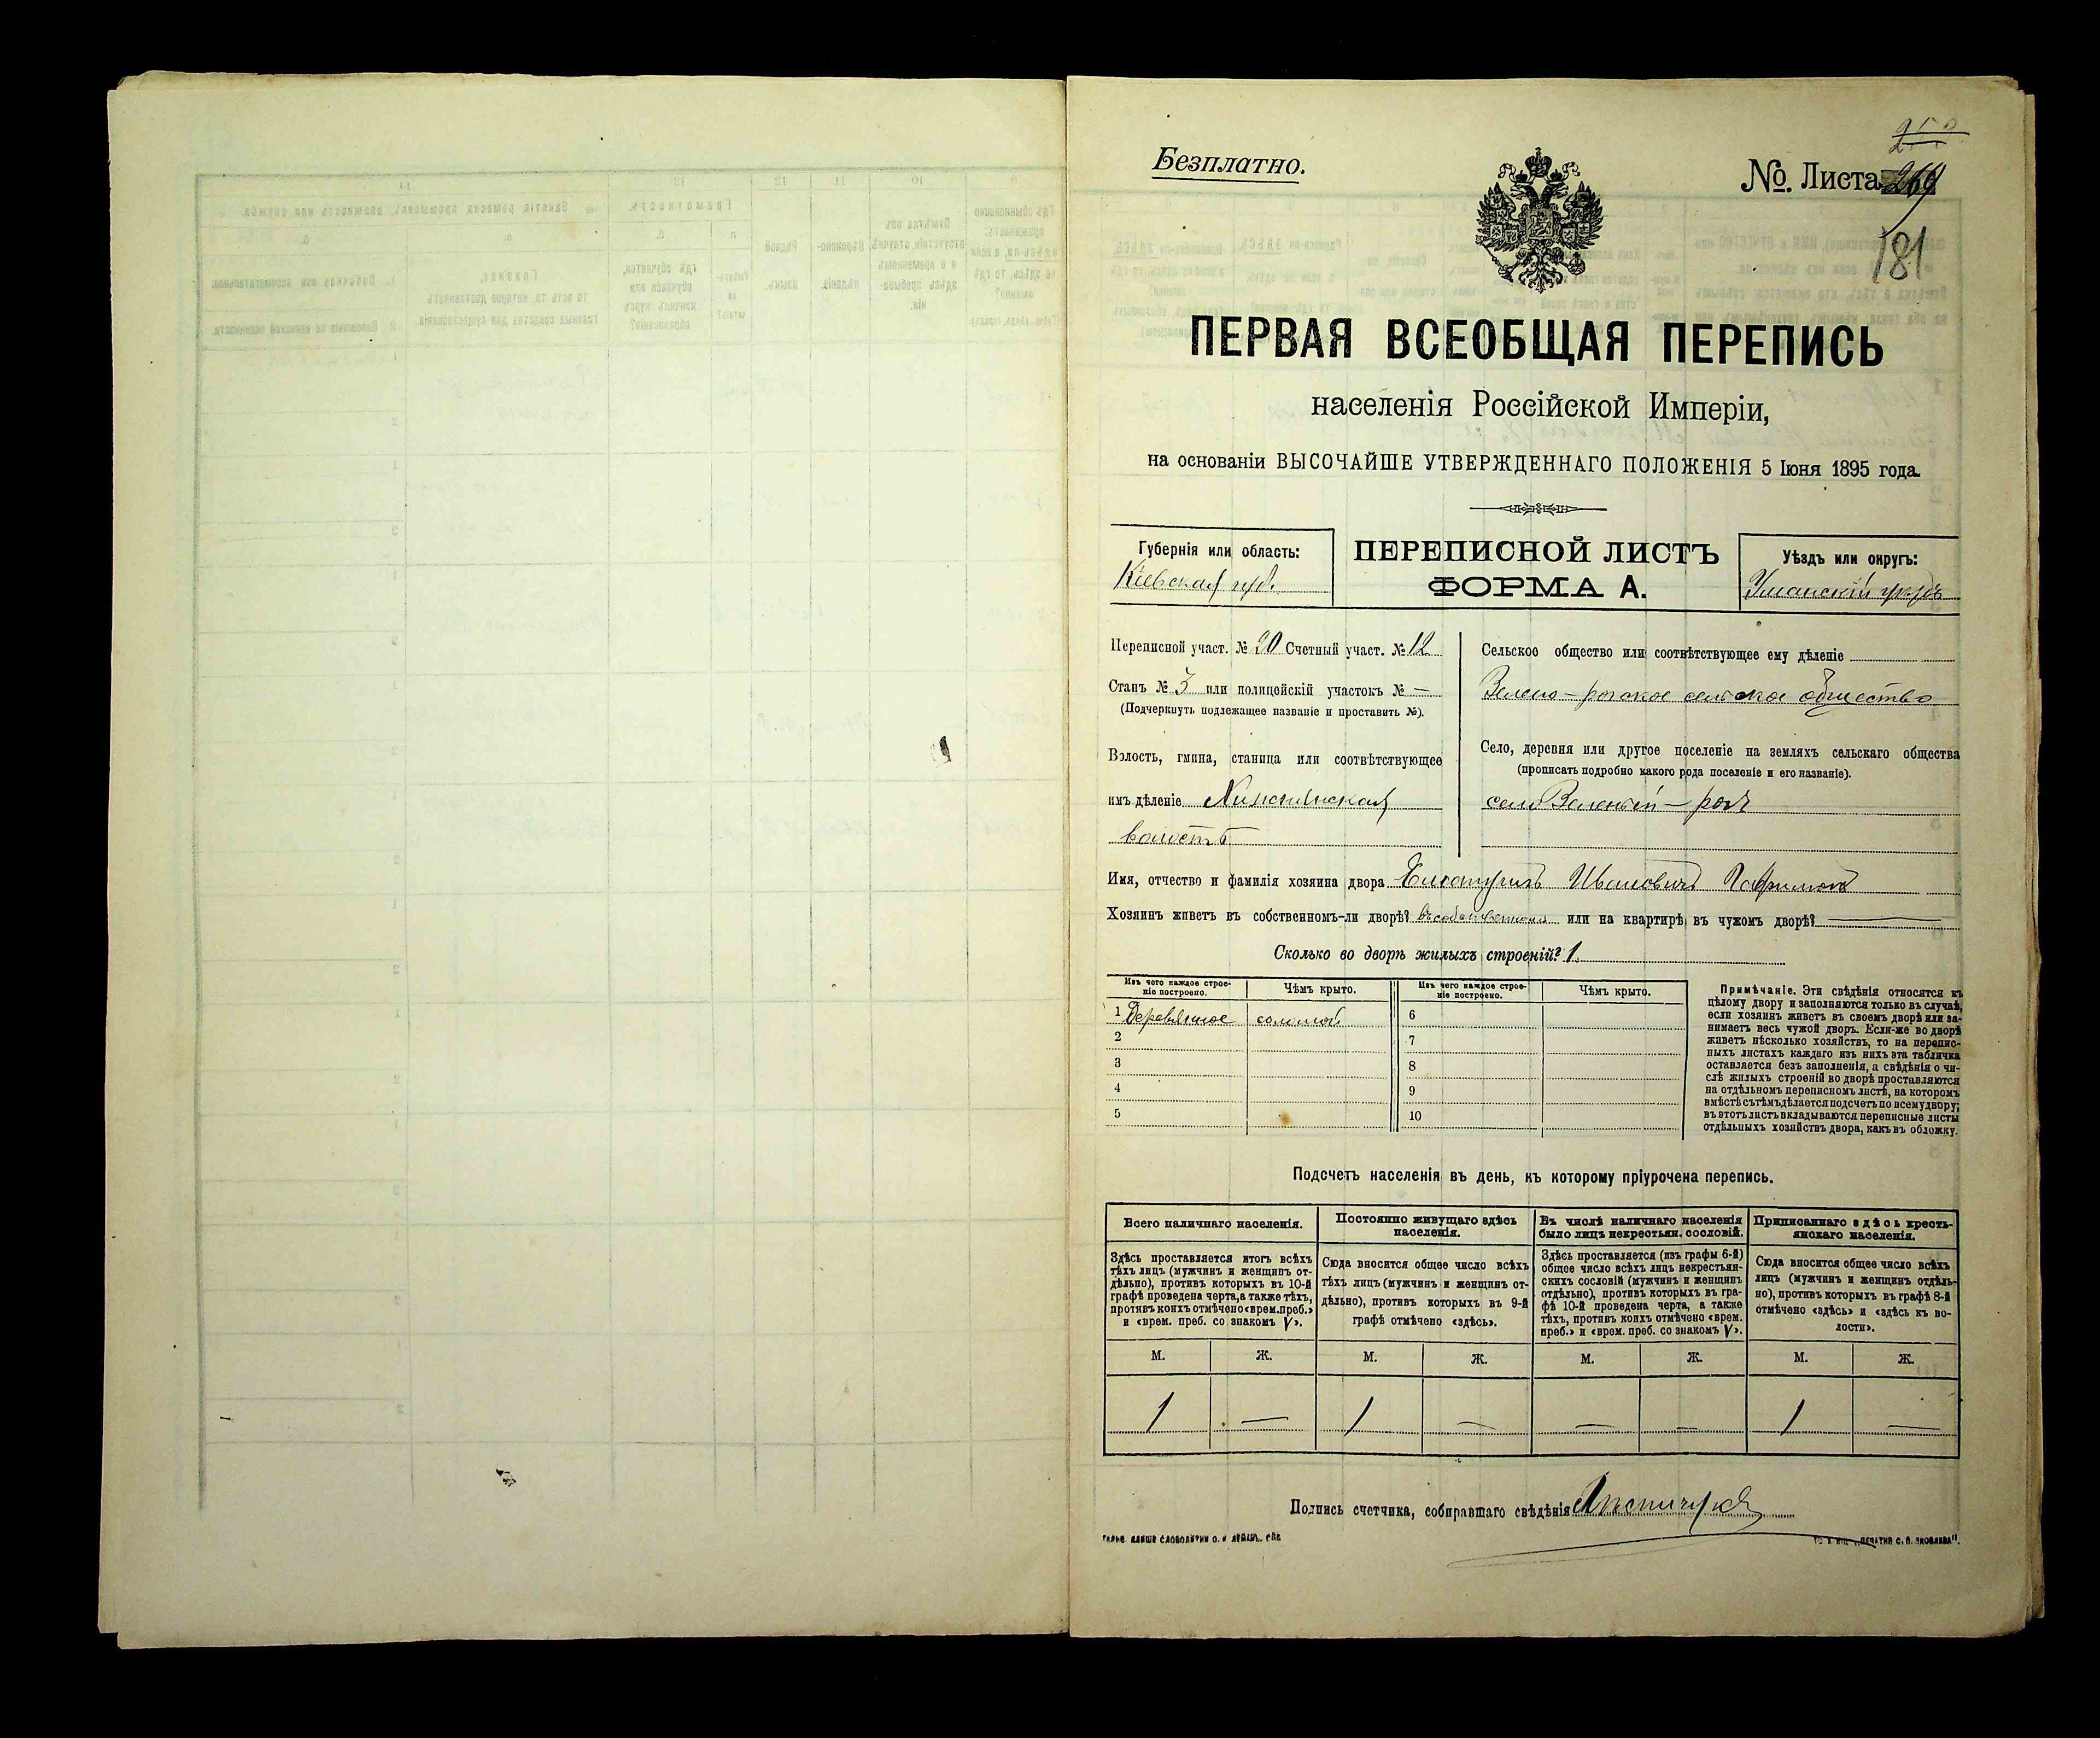 Безплатно.
№. Листа 269
181
ПЕРВАЯ ВСЕОБЩАЯ ПЕРЕПИСЬ
населенія Россійской Имперіи,
на основаніи ВЫСОЧАЙШЕ УТВЕРЖДЕННАГО ПОЛОЖЕНІЯ 5 Іюня 1895 года.
Губернія или область:
Кіевская губ.
ПЕРЕПИСНОЙ ЛИСТЪ
ФОРМА А.
Уѣздъ или округъ:
Уманскій уѣздъ
Переписной участ. № 20 Счетный участ. № 12
Станъ № 3 или полицейскій участокъ № —
(Подчеркнуть подлежащее названіе и проставить №).
Волость, гмина, станица или соотвѣтствующее
имъ дѣленіе
волость
Сельское общество или соотвѣтствующее ему дѣленіе
Зелено-рогское сельское общество
Село, деревня или другое поселеніе на земляхъ сельскаго общества
(прописать подробно какого рода поселеніе и его названіе).
село Зеленый-рогъ
Имя, отчество и фамилія хозяина двора Ивановичъ
Хозяинъ живетъ въ собственномъ-ли дворѣ? въ собственномъ или на квартирѣ въ чужомъ дворѣ?
Сколько во дворѣ жилыхъ строеній? 1
Изъ чего каждое строе-
ніе построено.
Чѣмъ крыто.
Изъ чего каждое строе-
ніе построено.
Чѣмъ крыто.
1 Деревянное соломой
2
3
4
5
6
7
8
9
10
Примѣчаніе. Эти свѣдѣнія относятся къ
цѣлому двору и заполняются только въ случаѣ,
если хозяинъ живетъ въ своемъ дворѣ или за-
нимаетъ весь чужой дворъ. Если-же во дворѣ
живетъ нѣсколько хозяйствъ, то на перепис-
ныхъ листахъ каждаго изъ нихъ эта табличка
оставляется безъ заполненія, а свѣдѣнія о чи-
слѣ жилыхъ строеній во дворѣ проставляются
на отдѣльномъ переписномъ листѣ, на которомъ
вмѣстѣ съ тѣмъ дѣлается подсчетъ по всему двору;
въ этотъ листъ вкладываются переписные листы
отдѣльныхъ хозяйствъ двора, какъ въ обложку.
Подсчетъ населенія въ день, къ которому пріурочена перепись.
Всего наличнаго населенія.
Здѣсь проставляется итогъ всѣхъ
тѣхъ лицъ (мужчинъ и женщинъ от-
дѣльно), противъ которыхъ въ 10-й
графѣ проведена черта, а также тѣхъ,
противъ коихъ отмѣчено «врем. преб.»
и «врем. преб. со знакомъ V».
Постоянно живущаго здѣсь
населенія.
Сюда вносится общее число всѣхъ
тѣхъ лицъ (мужчинъ и женщинъ от-
дѣльно), противъ которыхъ въ 9-й
графѣ отмѣчено «здѣсь».
Въ числѣ наличнаго населенія
было лицъ некрестьян. сословій.
Здѣсь проставляется (изъ графы 6-й)
общее число всѣхъ лицъ некрестьян-
скихъ сословій (мужчинъ и женщинъ
отдѣльно), противъ которыхъ въ гра-
фѣ 10-й проведена черта, а также
тѣхъ, противъ коихъ отмѣчено «врем.
преб.» и «врем. преб. со знакомъ V».
Приписаннаго здѣсь кресть-
янскаго населенія.
Сюда вносится общее число всѣхъ
лицъ (мужчинъ и женщинъ отдѣль-
но), противъ которыхъ въ графѣ 8-й
отмѣчено «здѣсь» и «здѣсь къ во-
лости».
М. Ж. М. Ж. М. Ж. М. Ж.
1 — 1 — — — 1 —
Подпись счетчика, собиравшаго свѣдѣнія